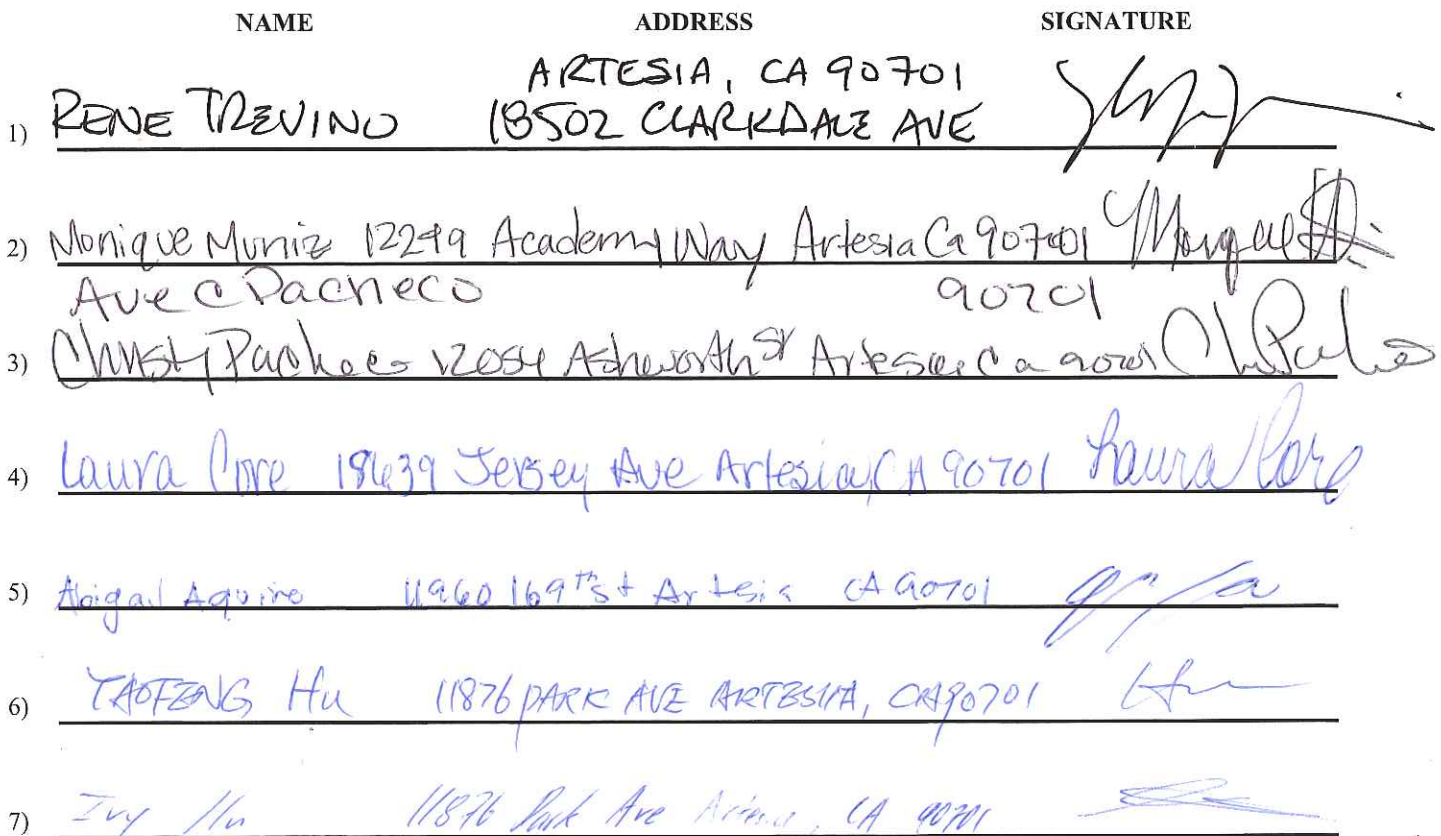 NAME ADDRESS SIGNATURE
ARTESIA, CA 90701
1) RENE TREVINO 18502 CLARKDALE AVE
2) Monique Muniz 12299 Academy Way Artesia Ca 90701
Ave C Pacheco 90701
3) Christy Pacheco 12054 Ashworth St Artesia Ca 90701
4) Laura Core 18639 Jersey Ave Artesia, CA 90701 Laura Core
5) Abigail Aquire 11960 169th st Artesia CA 90701
6) TAOFENG Hu 11876 PARK AVE ARTESIA, CA 90701 Hu
7) Ivy Hu 11876 Park Ave Artesia, CA 90701